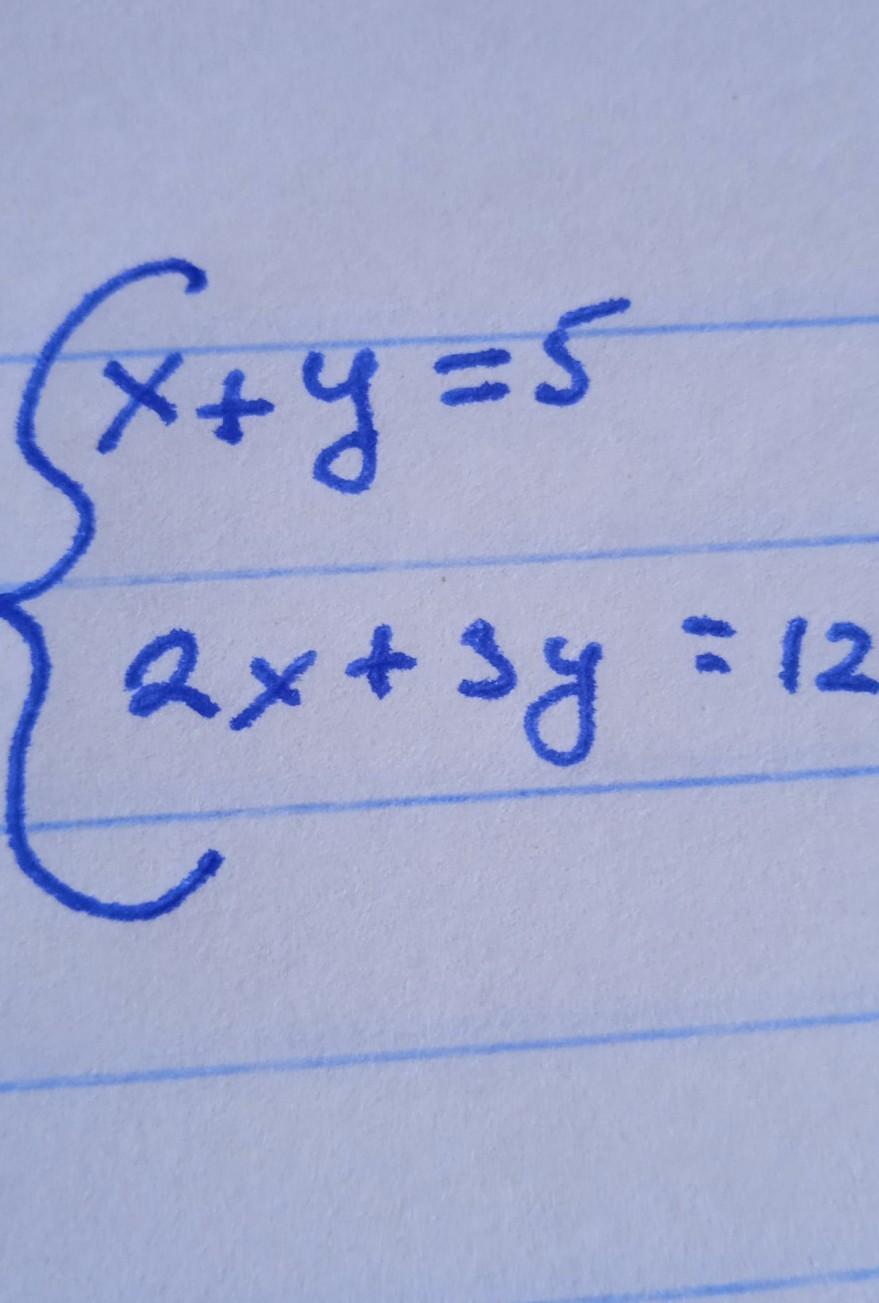 x+y=5
2x+3y=12